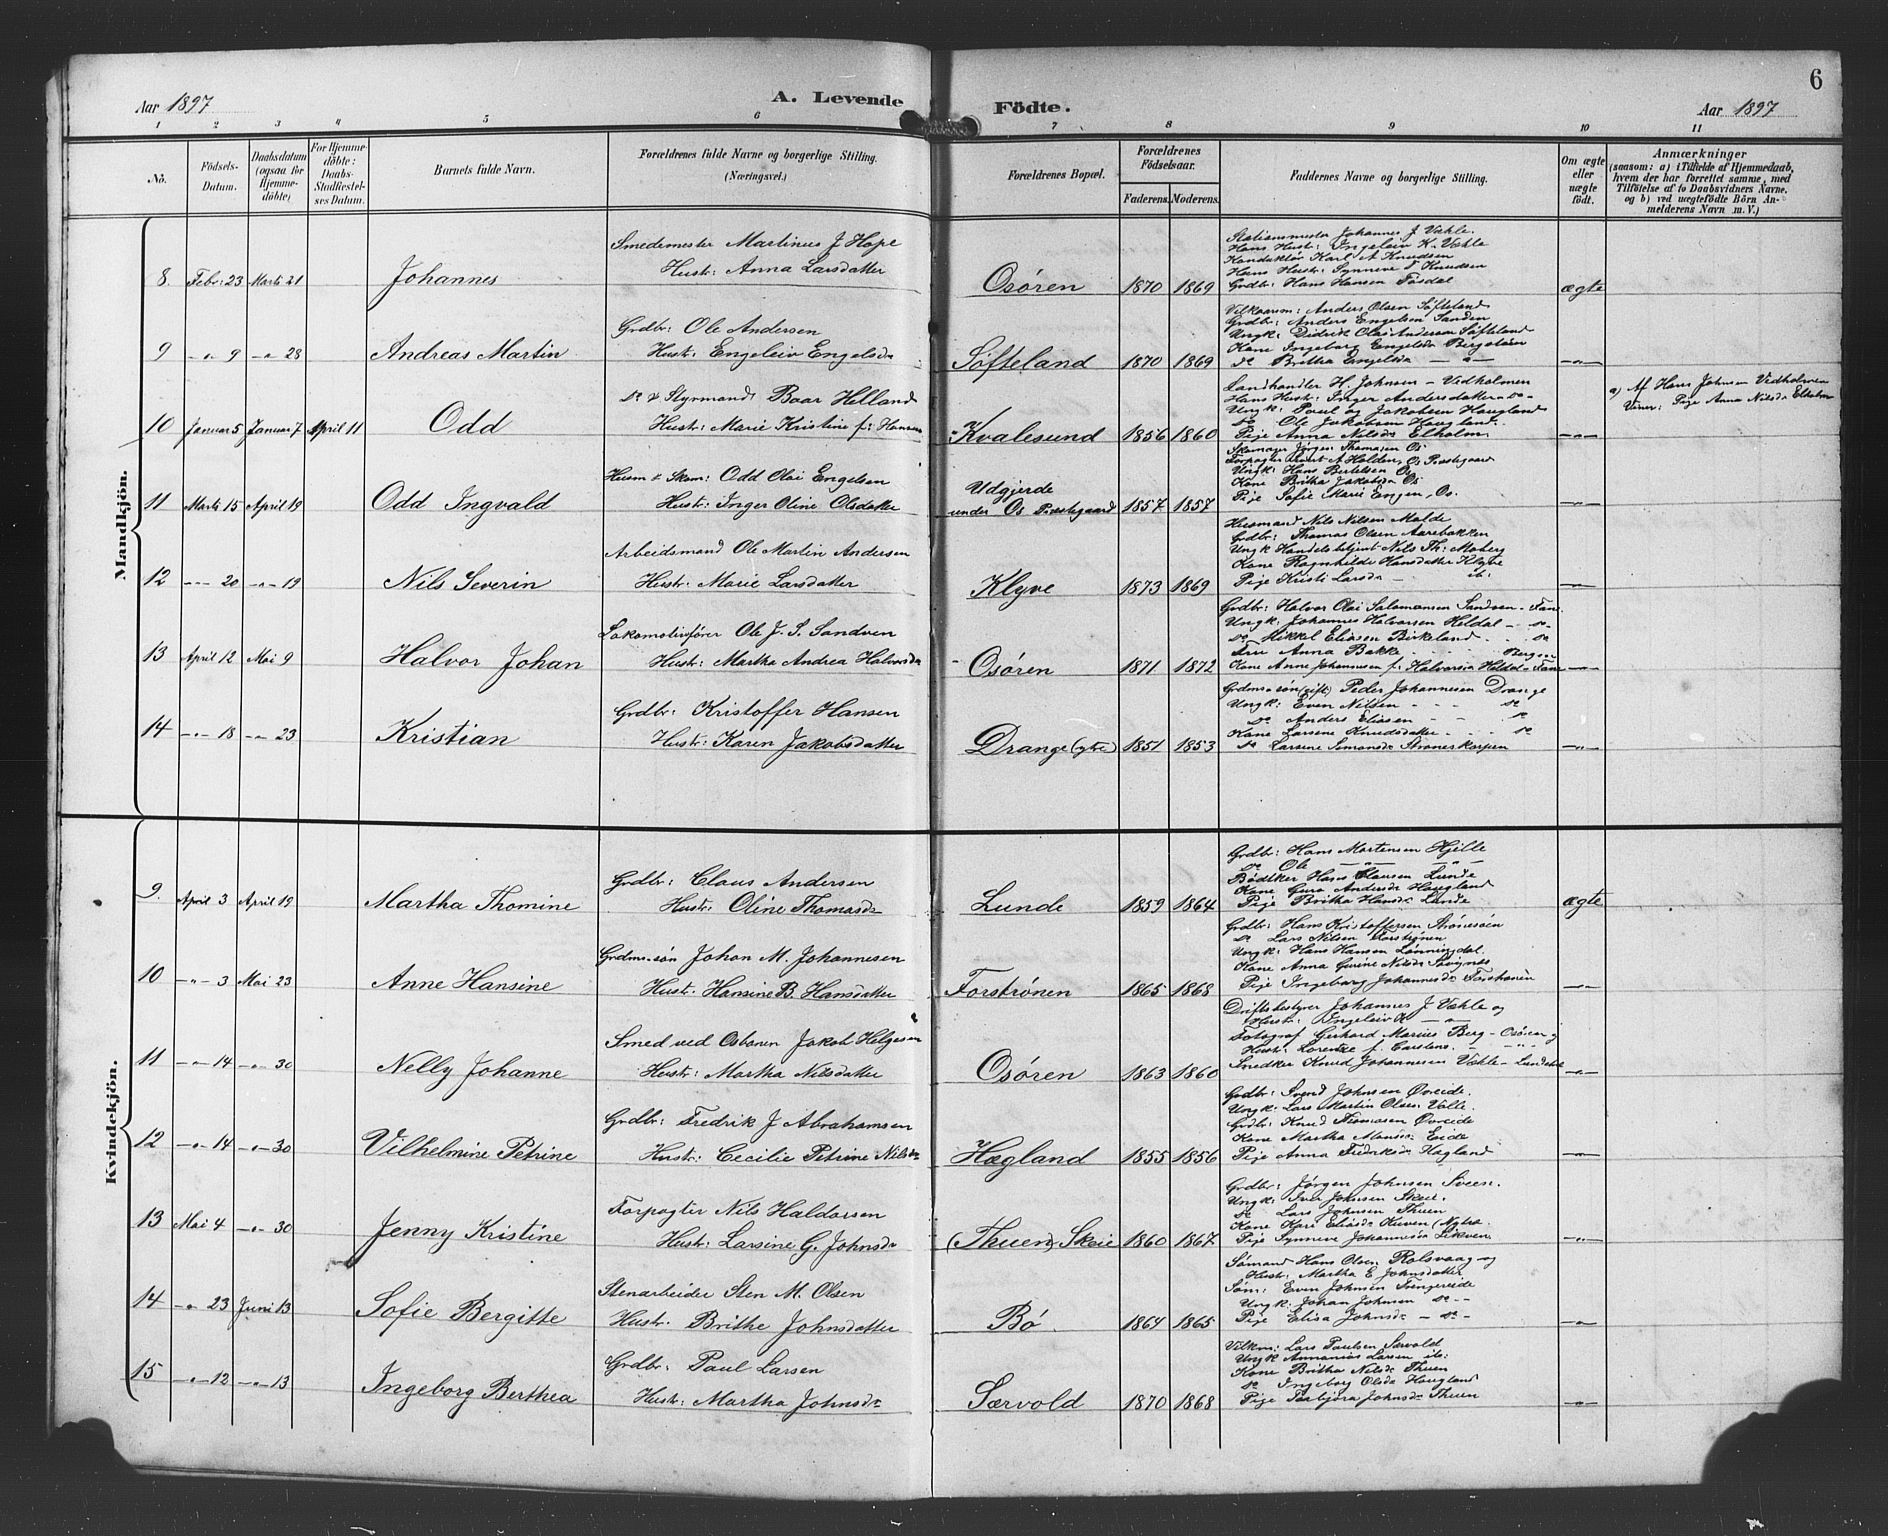 Aar 1897
A. Levende Födte.
Aar 1897
6
1 2 3 4 5 6 7 8 9 10 11
No.
Födsels-Datum.
Daabsdatum (ogsaa for Hjemmedöbte)
For Hjemmedöbte: Daabs-Stadfæstelses Datum.
Barnets fulde Navn.
Forældrenes fulde Navne og borgerlige Stilling. (Næringsvei.)
Forældrenes Bopæl.
Forældrenes Födselsaar.
Faderens. Moderens.
Faddernes Navne og borgerlige Stilling.
Om ægte eller uægte födt.
Anmærkninger
(saasom: a) i Tilfælde af Hjemmedaab, hvem der har forrettet samme, med Tilföielse af to Daabsvidners Navne, og b) ved uægtefödte Börn Anmelderens Navn m. V.)
Mandkjön.
8. Febr: 23 Marts 21 Johannes
Smedemester Martinus J Hope
Hustr: Anna Larsdatter
Osøren 1870 1869
Stationsmester Johannes J Væhle.
Hans Hustr: Ingeleiv K. Væhle
Konduktør Karl A Knudsen
Hans Hustr: Synneve T Knudsen
Grdbr: Hans Hansen Tøsdal
ægte
9 -"- 9 -"- 28 Andreas Martin
Grdbr: Ole Andersen
Hustr: Engeleiv Engelsdr
Søfteland 1870 1869
Vilkaarsm: Anders Olsen Søfteland
Grdbr: Anders Engelsen Sanden
Ungk: Didrik Olai Andersen Søfteland
Kone Ingeborg Engelsdr Bergstøen
do Britha Engelsdr -"-
-"-
10 Januar 5 Januar 7 April 11 Odd
do & Styrmand Baar Helland
Hustr: Marie Kristine f: Hansen
Kvalesund 1856 1860
Landhandler H. Johnsen - Vedholmen
Hans Hustr: Inger Andersdatter -do-
Ungk: Paul og Jakobsen Haugland
do Ole Jakobsen Haugland.
Pige Anna Nilsdr Elholm
-"-
a) Af Hans Johnsen Vedholmen
Vidner: Pige Anna Nilsdr Elholm
11 Marts 15 April 19 Odd Ingvald
Husm & Skom: Odd Olai Engelsen
Hustr: Inger Oline Olsdatter
Udgjerde
under Os Præstegaard 1857 1857
Skomager Jørgen Thomasen Os
Forpagter A Holden, Os Præstegaard
Ungk: Hans Bertelsen Os
Kone Britha Jakobsdr Os
Pige Sofie Marie Engen, Os.
-"-
12 -"- 20 -"- 19 Nils Severin
Arbeidsmand Ole Martin Andersen
Hustr: Marie Larsdatter
Klyve 1873 1869
Husmand Nils Nilsen Molde
Grdbr: Thomas Olsen Aarebakken
Ungk Handelsbetjent Nils Th: Moberg
Kone Ragnhilde Hansdatter Klyve
Pige Kristi Larsdr - ib:
-"-
13 April 12 Mai 9 Halvor Johan
Lokomotivfører Ole J. S. Sandven
Hustr: Martha Andrea Halvorsdr
Osøren 1871 1872
Grdbr: Halvor Olai Salomonsen Sandven - Fane
Ungk: Johannes Halvorsen Heldal - do-
do Mikkel Eliasen Birkeland - - do
Fru Anna Bakke - - - Bergen
Kone Anne Johannesen f: Halvorsen Heldal - Fane
-"-
14 -"- 18 -"- 23 Kristian
Grdbr: Kristoffer Hansen
Hustr: Karen Jakobsdatter
Drange (ytre) 1851 1853
Grdms-søn (gift) Peder Johannesen Drange
Ungk: Even Nilsen - - - do
do Anders Eliasen - - do
Kone Larsine Knudsdatter - - - do
do Larsine Simonsdr Strøneskorpen
-"-
Kvindekjön.
9. April 3 April 19 Martha Thomine
Grdbr: Claus Andersen
Hustr: Oline Thomasdr
Lunde 1859 1864
Grdbr: Hans Mortensen Hjelle
do Ole -"- -"-
Bødtker Hans Clausen Lunde
Kone Guro Andersdr Haugland
Pige Britha Hansdr Lunde
ægte
10 -"- 3 Mai 23 Anne Hansine
Grdms-søn Johan M. Johannesen
Hustr. Hansine B. Hansdatter
Forstrønen 1865 1868
Grdbr: Hans Kristoffersen Strønesøen
do Lars Nilsen Forstrønen
Ungk: Hans Hansen Lønningdal
Kone Anna Gurine Nilsdr
Pige Ingeborg Johannesdr Forstrønen
-"-
11 -"- 14 -"- 30 Nelly Johanne
Smed ved Osbanen Jakob Helgesen
Hustr: Martha Nilsdatter
Osøren 1863 1860
Driftsbestyrer Johannes J Væhle og
Hustr: Ingeleiv K -"-
Fotograf Gerhard Marius Berg - Osøren og
Hustr: Lorentze f. Carstens. - -"-
Snedker Knud Johannesen Væhle -
-"-
12 -"- 14 -"- 30 Vilhelmine Petrine
Grdbr: Fredrik J Abrahamsen
Hustr: Cecilie Petrine Nilsdr
Hægland 1855 1856
Grdbr: Svend Johnsen Øvreide.
Ungk: Lars Martin Olsen Valle.
Grdbr: Knud Thomasen Øvreide
Kone Martha Monsdr Eide
Pige Anna Fredriksdr Hægland
-"-
13 Mai 4 -"- 30 Jenny Kristine
Forpagter Nils Haldorsen
Hustr: Larsine G. Johnsdr
(Thuen) Skeie 1860 1867
Grdbr: Jørgen Johnsen Sveen.
Ungk: Iver Johnsen Skeie.
do Lars Johnsen Thuen
Kone Kari Eliasdr Kuven (Nytræ.
Pige Synneve Johannesdr Lekven
-"-
14 -"- 23 Juni 13 Sofie Bergitte
Stenarbeider Sten M. Olsen
Hustr. Brithe Johnsdatter
Bø 1864 1865
Sømand Hans Olsen Rolsvaag og
Hustr: Martha E Johnsdatter
Søm: Even Johnsen Tungereide
Ungk: Johan Johnsen do -
Pige Elisa Johnsdr - do -
-"-
15 -"- 12 -"- 13 Ingeborg Berthea
Grdbr: Paul Larsen
Hustr: Martha Johnsdr
Særvold 1870 1868
Vilkm: Lars Paulsen Særvold
Ungk Annanias Larsen ib:
Kone Britha Nilsdr Thuen
do Ingeborg Olsdr Haugland
Pige Torbjøra Johnsdr Thuen
-"-